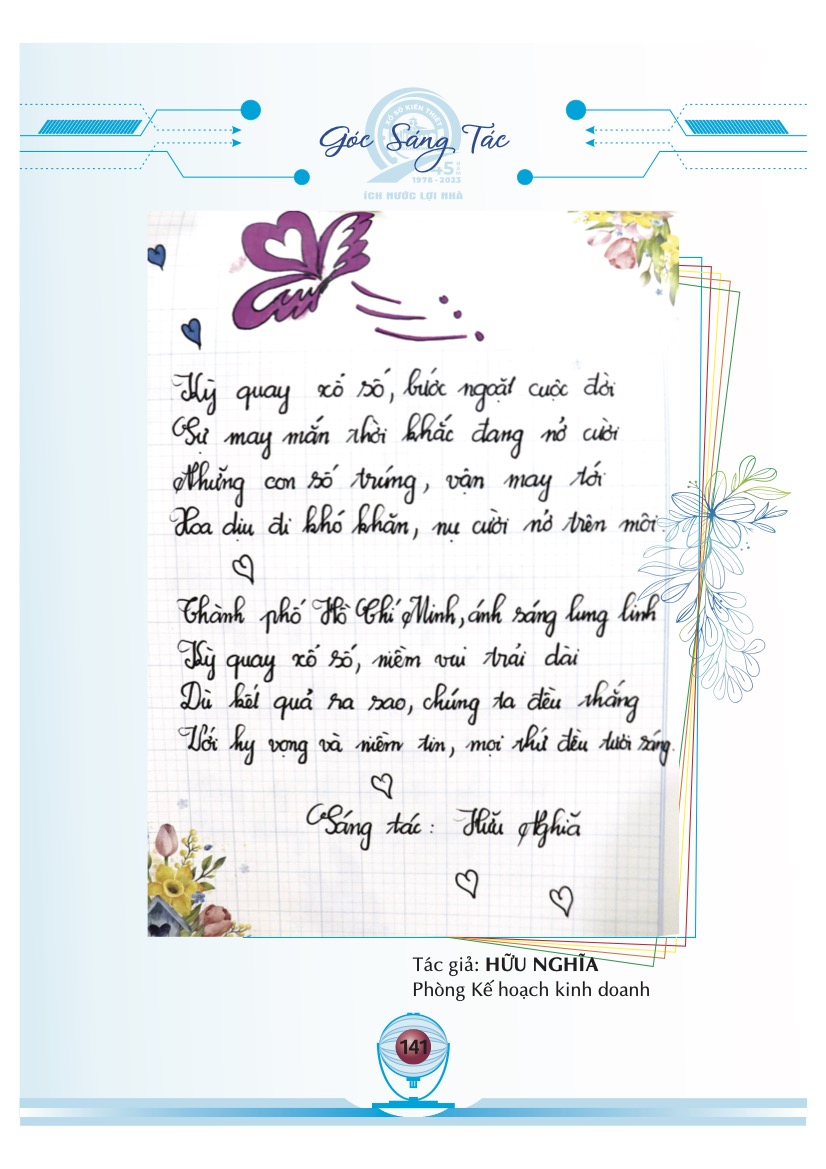 XỔ SỐ KIẾN THIẾT
Góc Sáng Tác
45 NĂM
1978 - 2023
ÍCH NƯỚC LỢI NHÀ
Kỳ quay xổ số, bước ngoặt cuộc đời
Sự may mắn thời khắc đang nở cười
Những con số trúng, vận may tới
Xoa dịu đi khó khăn, nụ cười nở trên môi.
Thành phố Hồ Chí Minh, ánh sáng lung linh
Kỳ quay xổ số, niềm vui trải dài
Dù kết quả ra sao, chúng ta đều thắng
Với hy vọng và niềm tin, mọi thứ đều tươi sáng.
Sáng tác: Hữu Nghĩa
Tác giả: HỮU NGHĨA
Phòng Kế hoạch kinh doanh
141